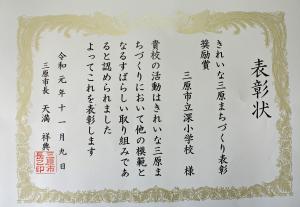 表彰状
きれいな三原まちづくり表彰
奨励賞
三原市立深小学校 様
貴校の活動はきれいな三原ま
ちづくりにおいて他の模範と
なるすばらしい取り組みであ
ると認められました
よってこれを表彰します
令和元年十一月九日
三原市長 天満祥典
三原市
長之印